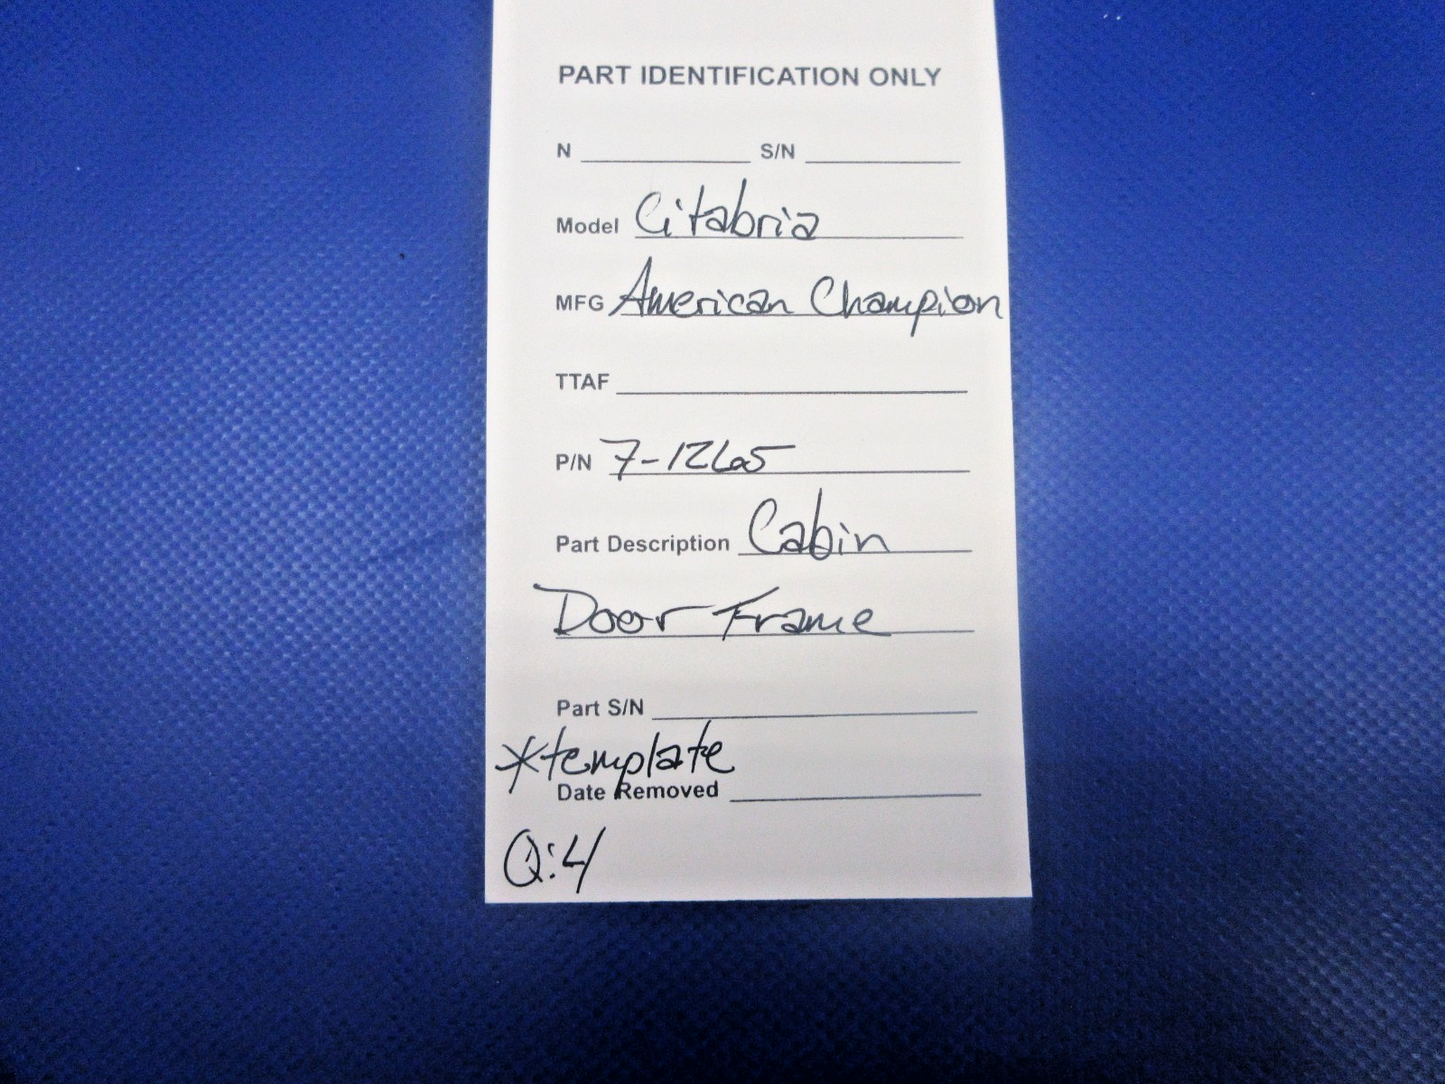 PART IDENTIFICATION ONLY
N S/N
Model Citabria
MFG American Champion
TTAF
P/N 7-1265
Part Description Cabin
Door Frame
Part S/N
*template
Date Removed
Q:4